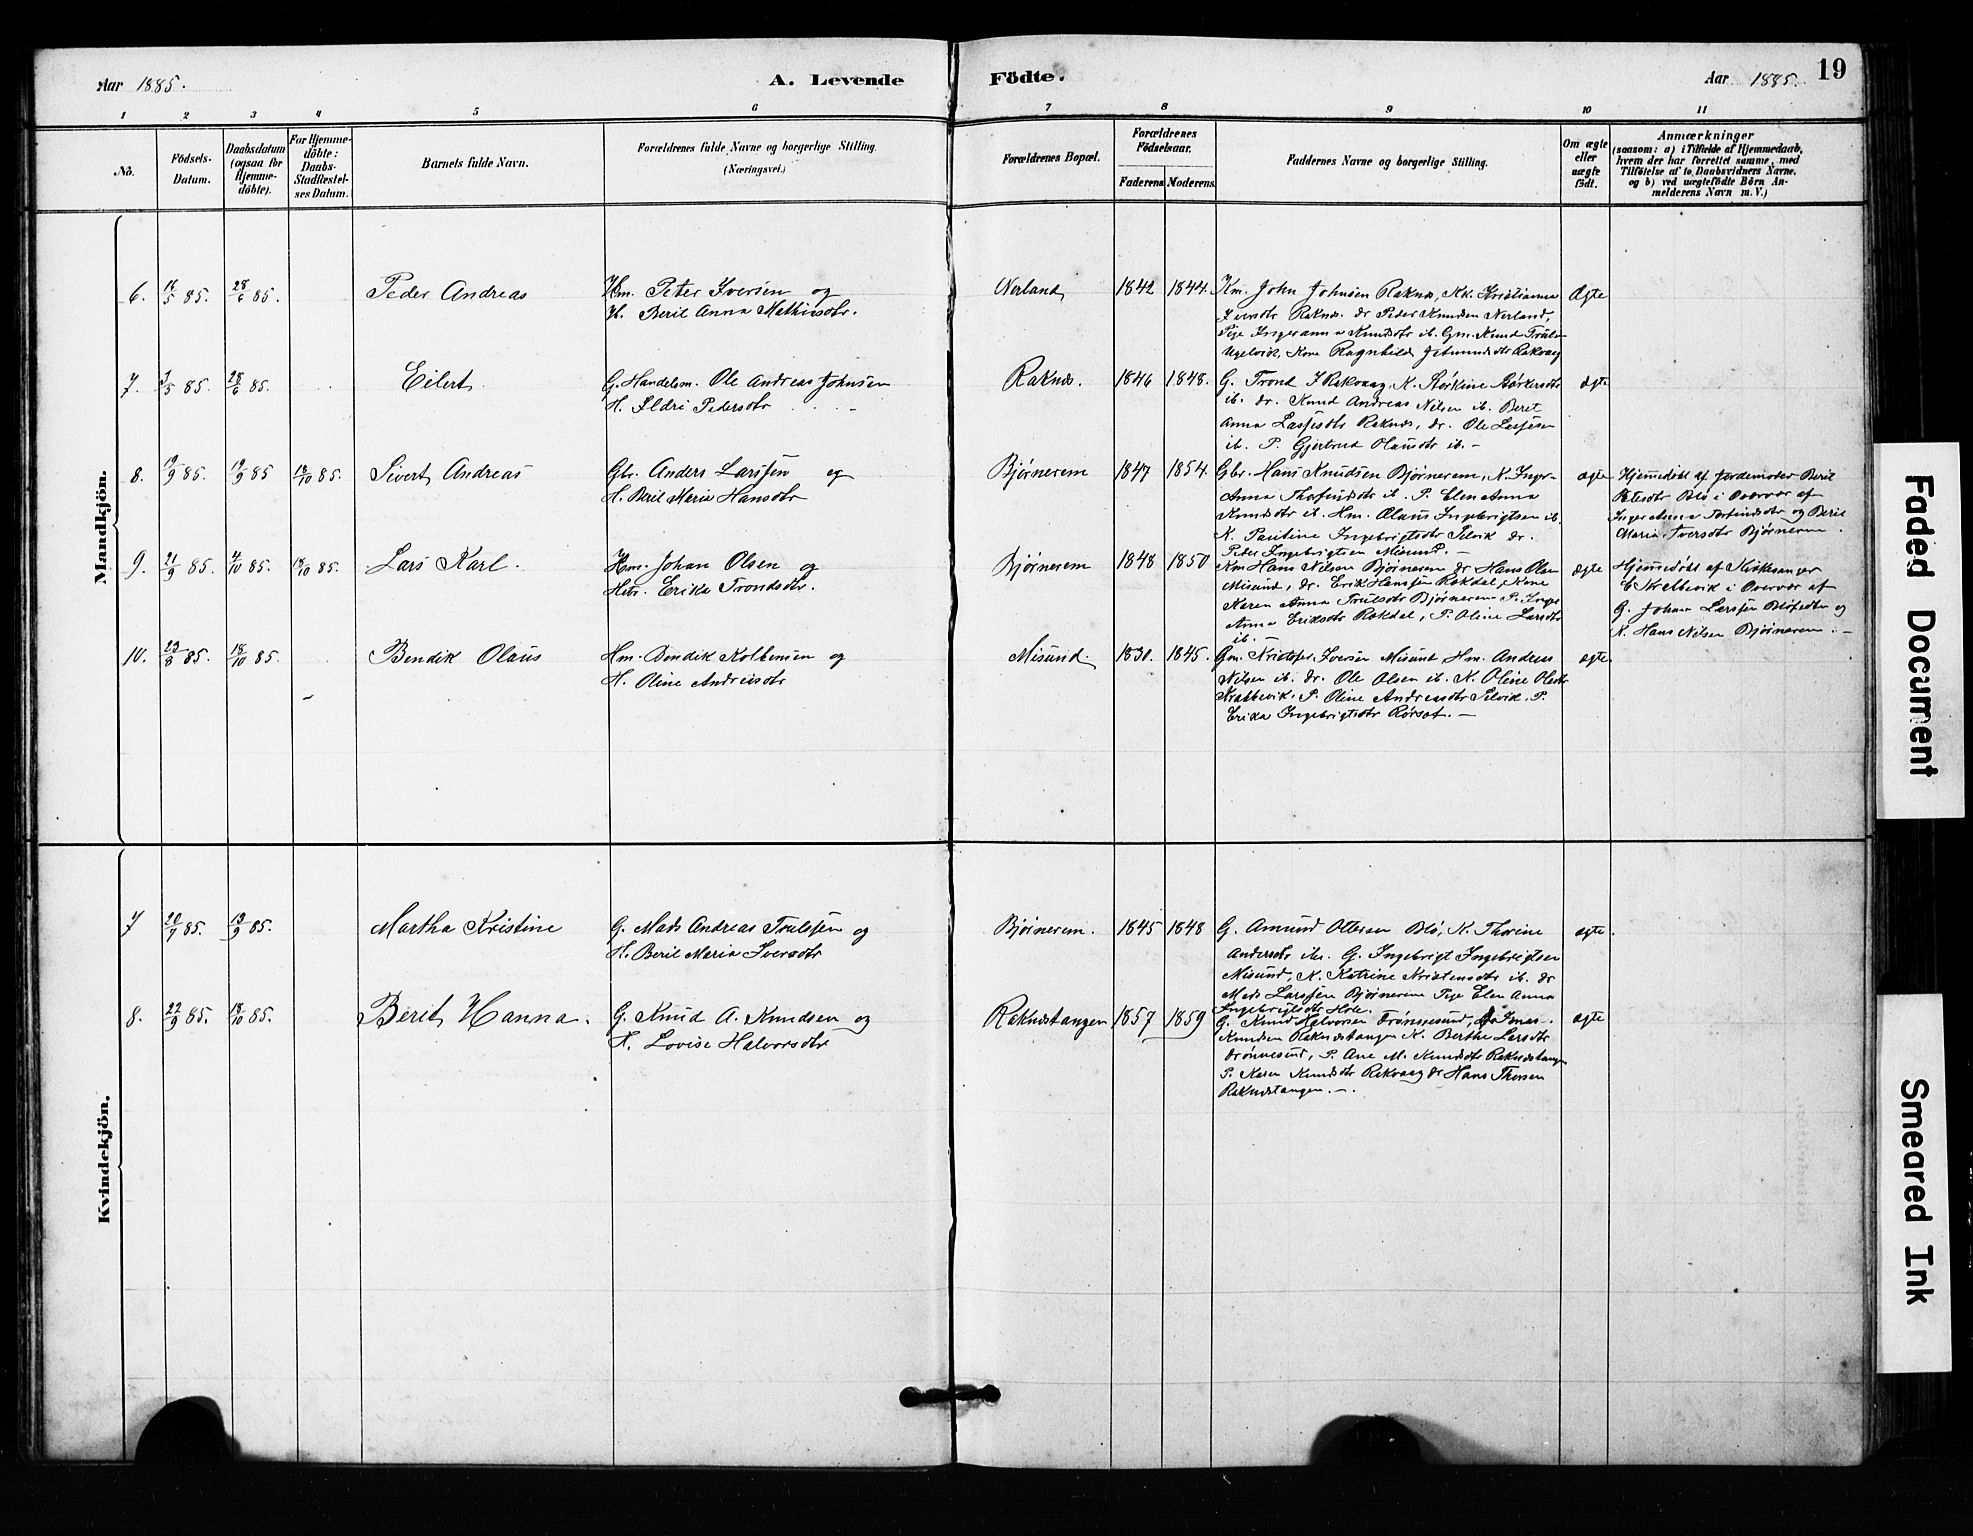 Aar 1885.
A. Levende
Födte.
Aar 1885.
19
1 2 3 4 5 6 7 8 9 10 11
No.
Födsels-
Datum.
Daabsdatum
(ogsaa for
Hjemme-
döbte).
For Hjemme-
döbte:
Daabs-
Stadfæstel-
ses Datum.
Barnets fulde Navn.
Forældrenes fulde Navne og borgerlige Stilling.
(Næringsvei.)
Forældrenes Bopæl.
Forældrenes
Födselsaar.
Faderens Moderens
Faddernes Navne og borgerlige Stilling.
Om ægte
eller
uægte
födt.
Anmærkninger
(saasom: a) i Tilfælde af Hjemmedaab,
hvem der har forrettet samme, med
Tilföielse af to Daabsvidners Navne,
og b) ved uægtefödte Börn An-
melderens Navn m. V.)
Mandkjön.
6. 16/5 85. 28/6 85.
Peder Andreas
Hm. Peter Iversen og
H. Beril Anna Mathisdtr.
Nerland
1842 1844.
Km. John Johnsen Raknes, Kk. Kristianna
Iversdtr Raknes. dr Peder Knudsen Nerland,
Pige Ingeranna Knudsdtr ib. Gm. Knud Truls
Ugelvik, Kone Ragnhild Jetmundsdtr Rakvaag
Ægte
7. 28/6 85.
Eilert
G. Handelsm. Ole Andreas Johnsen
H. Ildri Pedersdtr
Raknes.
1846 1848.
G. Trond I Rakvaag, K. Störkine Störkersdtr
ib. dr. Knud Andreas Nilsen ib. Beret
Anna Lassesdtr Raknes, dr. Ole Lassesen
ib. P. Gjertrud Olausdtr ib. -
ægte
8. 19/9 85. 19/9 85 18/10 85.
Sivert Andreas
Gbr. Anders Larssen og
H. Beril Marie Hansdtr
Bjørnerem
1847 1854.
Gbr. Hans Knudsen Bjørnerem, K. Inger-
Anna Thofindsdtr ib. P. Elen Anna
Knudsdtr ib. Hm. Olaus Ingebrigtsen ib.
K. Pauline Ingebrigtsdtr Selvik dr.
Peder Ingebrigtsen Misund. -
ægte
Hjemmedøbt af Jordemoder Beril
Petersdtr Blø i Overvær af
Inger Anna Torfindsdtr og Beril
Maria Iversdtr Bjørnerem.
9. 21/9 85. 4/10 85. 18/10 85.
Lars Karl.
Hm. Johan Olsen og
Hbr. Erika Trondsdtr.
Bjørnerem
1848 1850
Km Hans Nilsen Bjørnerem dr Hans Olsen
Misund, dr. Erik Hanssen Rakdal, Kone
Karen Anna Trulsdtr Bjørnerem P. Inge
Anna Eriksdtr Rakdal, P. Oline Larsdtr
ib. -
ægte
Hjemmedøbt af Kirkesanger
E Skalbevik i Overvær af
G. Johan Larssen Bløfeldte og
K. Hans Nilsen Bjørnerem. -
10. 23/8 85. 18/10 85.
Bendik Olaus
Hm. Bendik Kolbensen og
H. Oline Andreasdtr
Misund.
1830. 1845.
Gm. Kristofer Iversen Misund Hm. Andreas
Nilsen ib. dr. Ole Olsen ib. K Oline Olsdtr
Krabbevik, P. Oline Andreasdtr Selvik. P.
Erika Ingebrigtsdtr Rørset. -
ægte
Kvindekjön.
7 20/7 85. 13/9 85.
Martha Kristine
G. Mads Andreas Trulssen og
H. Beril Maria Iversdtr
Bjørnerem.
1845 1848
G. Amund Ottersen Blø, K. Thorine
Andersdtr ibs. G. Ingebrigt Ingebrigtsen
Misund, K. Katrine Kristensdtr ib. dr
Mads Larssen Bjørnerem Pige Elen Anna
Ingebrigtsdtr Hole.
ægte.
8. 22/9 85. 18/10 85.
Berit Hanna.
G. Knud A. Knudsen og
H. Lovise Halvorsdtr
Raknestangen
1857 1859
G. Knud Halvorsen Drønnesund,
Knudsen Raknestangen K. Berthe Larsdtr
Drønnesund, P. Ane M. Knudsdtr Raknestangen
P. Karen Knudsdtr Rakvaag dr Hans Thorsen
Raknestangen. -
ægte
Faded Document
Smeared Ink